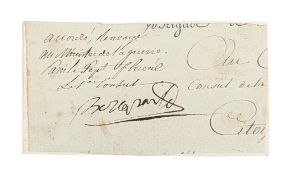 accordé, Renvoyé
au Ministre de la guerre.
Paris le Sept floreal
Le 1er Consul
Bonaparte
Brigade de
Au C
Consul de la
Citoy